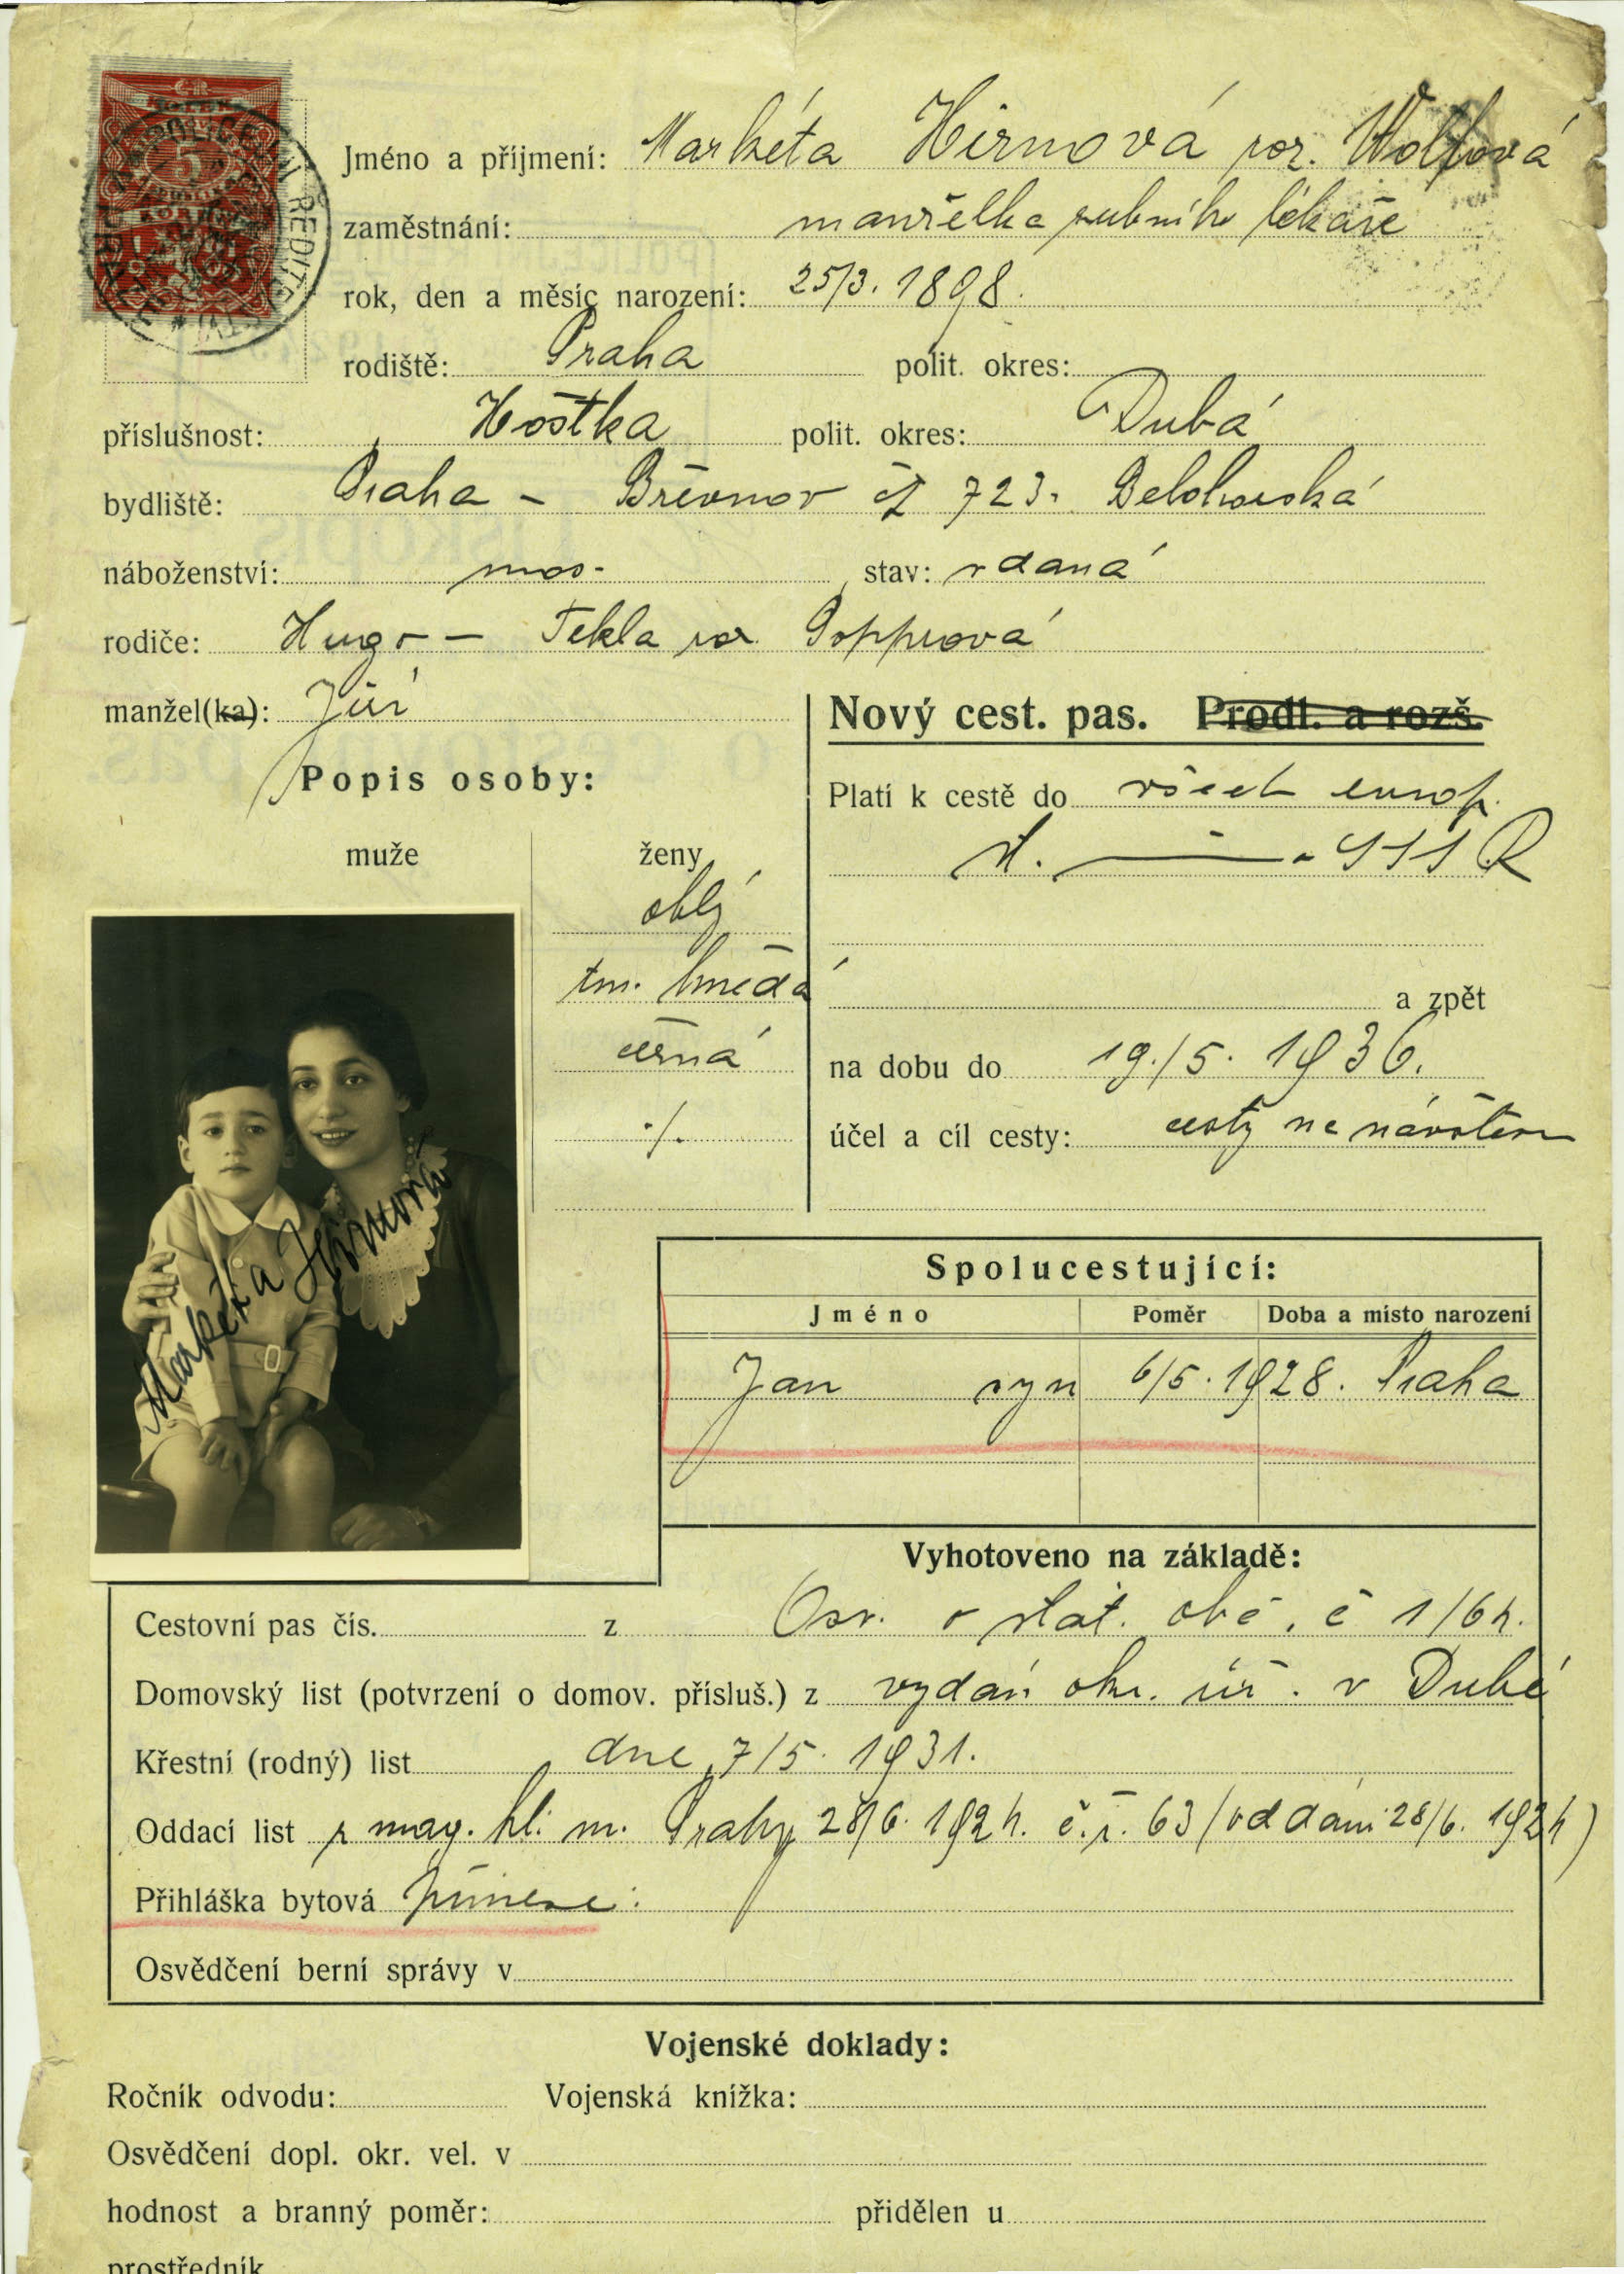 Jméno a příjmení: Markéta Hirnová roz. Wolfová
zaměstnání: manželka zubního lékaře
rok, den a měsíc narození: 25/3. 1898.
rodiště: Praha polit. okres:
příslušnost: Hoštka polit. okres: Dubá
bydliště: Praha - Břevnov čp 723. Bělohorská
náboženství: mos. stav: vdaná
rodiče: Hugo - Tekla roz. Popprová
manžel(ka): Jiří
Nový cest. pas. Prodl. a rozš.
Popis osoby:
Platí k cestě do všech europ.
st. SSSR
muže ženy
oblý
tm. hnědá
a zpět
černá
na dobu do 19./5. 1936.
./.
účel a cíl cesty: cesty na návštěvu
Markéta Hirnová
Spolucestující:
Jméno Poměr Doba a místo narození
Jan syn 6/5. 1928. Praha
Vyhotoveno na základě:
Cestovní pas čís. z Osv. o stát. obč. č 1/64.
Domovský list (potvrzení o domov. přísluš.) z vydán okr. úř. v Dubé
Křestní (rodný) list dne 7/5. 1931.
Oddací list z mag. hl. m. Prahy 28/6. 1924. č.ř. 63 (oddáni 28/6. 1924)
Přihláška bytová
Osvědčení berní správy v
Vojenské doklady:
Ročník odvodu: Vojenská knížka:
Osvědčení dopl. okr. vel. v
hodnost a branný poměr: přidělen u
prostředník